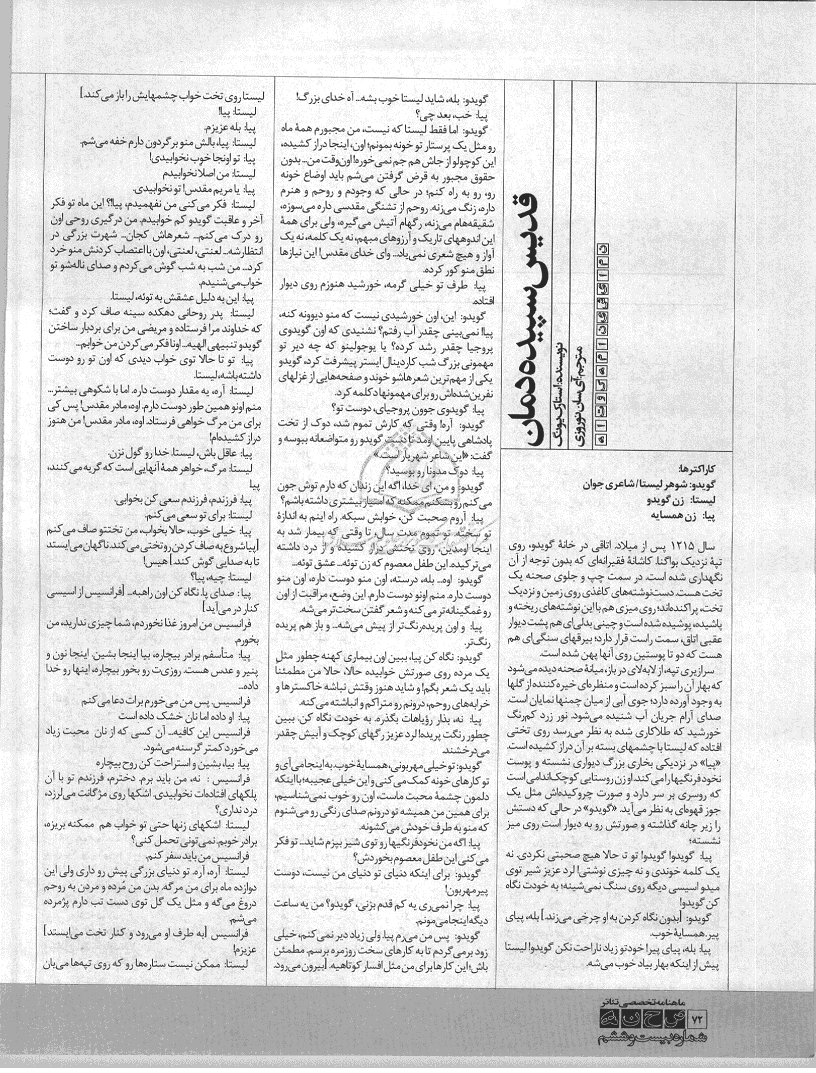 نمایشنامه کوتاه
قدیس سپیده دمان
نویسنده: استارک یونگ
مترجم: آی سان نوروزی
کاراکترها:
گویدو: شوهر لیستا/ شاعری جوان
لیستا: زن گویدو
پیا: زن همسایه
سال ۱۲۱۵ پس از میلاد. اتاقی در خانۀ گویدو، روی
تپۀ نزدیک بواگنا. کاشانۀ فقیرانه‌ای که بدون توجه از آن
نگهداری شده است. در سمت چپ و جلوی صحنه یک
تخت هست. دست‌نوشته‌های کاغذی روی زمین و نزدیک
تخت، پراکنده‌اند؛ روی میزی هم با این نوشته‌های ریخته و
پاشیده، پوشیده شده است و چینی بدلی‌ای هم پشت دیوار
عقبی اتاق، سمت راست قرار دارد؛ بیرقهای سنگی‌ای هم
هست که دو تا پوستین روی آنها پهن شده است.
سرازیری تپه، از لابه‌لای در باز، میانۀ صحنه دیده می‌شود
که بهار آن را سبز کرده است و منظره‌ای خیره کننده از گلها
به وجود آورده دارد؛ جوی آبی از میان چمنها نمایان است.
صدای آرام جریان آب شنیده می‌شود. نور زرد کم‌رنگ
خورشید که طلاکاری شده به نظر می‌رسد روی تختی
افتاده که لیستا با چشمهای بسته بر آن دراز کشیده است.
«پیا» در نزدیکی بخاری بزرگ دیواری نشسته و پوست
نخود فرنگیها را می‌کند، او زن روستایی کوچک اندامی است
که روسری بر سر دارد و صورت چروکیده‌اش مثل یک
جوز قهوه‌ای به نظر می‌آید. «گویدو» در حالی که دستش
را زیر چانه گذاشته و صورتش رو به دیوار است روی میز
نشسته؛
پیا: گویدو! گویدو! تو تا حالا هیچ صحبتی نکردی. نه
یک کلمه خوندی و نه چیزی نوشتی! لرد عزیز شیر توی
میدو اسیسی دیگه روی سنگ نمی‌شینه؛ به خودت نگاه
کن گویدو!
گویدو: [بدون نگاه کردن به او چرخی می‌زند.] بله، پیای
پیر. همسایۀ خوب.
پیا: بله، پیای پیر! خودتو زیاد ناراحت نکن گویدو! لیستا
پیش از اینکه بهار بیاد خوب می‌شه.
گویدو: بله، شاید لیستا خوب بشه... آه خدای بزرگ!
پیا: خب، بعد چی؟
گویدو: اما فقط لیستا که نیست، من مجبورم همۀ ماه
رو مثل یک پرستار تو خونه بمونم؛ اون، اینجا دراز کشیده،
این کوچولو از جاش هم جم نمی‌خوره! اون‌وقت من... بدون
حقوق مجبور به قرض گرفتن می‌شم باید اوضاع خونه
رو، رو به راه کنم؛ در حالی که وجودم و روحم و هنرم
داره، زنگ می‌زنه. روحم از تشنگی مقدسی داره می‌سوزه،
شقیقه‌هام می‌زنه، رگهام آتیش می‌گیره، ولی برای همۀ
این اندوههای تاریک و آرزوهای مبهم، نه یک کلمه، نه یک
آواز و هیچ شعری نمی‌یاد... وای خدای مقدس! این نیازها
نطق منو کور کرده.
پیا: طرف تو خیلی گرمه، خورشید هنوزم روی دیوار
افتاده.
گویدو: این، اون خورشیدی نیست که منو دیوونه کنه،
پیا! نمی‌بینی چقدر آب رفتم؟ نشنیدی که اون گویدوی
پروجیا چقدر رشد کرده؟ با یوجولینو که چه دیر تو
مهمونی بزرگ شب کاردینال ایستر پیشرفت کرد، گویدو
یکی از مهم‌ترین شعرهاشو خوند و صفحه‌هایی از غزلهای
نفرین‌شده‌اش رو برای مهمونها دکلمه کرد.
پیا: گویدوی جوون پروجیای، دوست تو؟
گویدو: آره! وقتی که کارش تموم شد، دوک از تخت
پادشاهی پایین اومد تا دست گویدو رو متواضعانه ببوسه و
گفت: «این شاعر شهریار است.»
پیا: دوک مدونا رو بوسید؟
گویدو: و من، ای خدا، اگه این زندان که دارم توش جون
می‌کنم رو بشکنم ممکنه که امتیاز بیشتری داشته باشم؟
پیا: آروم صحبت کن، خوابش سبکه. راه اینم به اندازۀ
تو سخته. تو تموم مدت سال، تا وقتی که بیمار شد به
اینجا اومدین، روی تختش دراز کشیده و از درد داشته
می‌ترکیده. این طفل معصوم که زن توئه... عشق توئه...
گویدو: اوه... بله، درسته، اون منو دوست داره، اون منو
دوست داره. منم اونو دوست دارم. این وضع، مراقبت از اون
رو غمگینانه‌تر می‌کنه و شعر گفتن سخت‌تر می‌شه.
پیا: و اون پریده‌رنگ‌تر از پیش می‌شه... و باز هم پریده
رنگ‌تر.
گویدو: نگاه کن پیا، ببین اون بیماری کهنه چطور مثل
یک مرده روی صورتش خوابیده حالا، حالا من مطمئناً
باید یک شعر بگم! و شاید هنوز وقتش نباشه خاکسترها و
خرابه‌های روحم، درونم رو متراکم و انباشته می‌کنه.
پیا: نه، بذار رؤیاهات بگذره. به خودت نگاه کن، ببین
چطور رنگت پریده! لرد عزیز رگهای کوچک و آبیش چقدر
می‌درخشند.
گویدو: تو خیلی مهربونی، همسایۀ خوب به اینجا می‌آی و
تو کارهای خونه کمک می‌کنی و این خیلی عجیبه؛ با اینکه
دلمون چشمۀ محبت ماست، اون رو خوب نمی‌شناسیم،
برای همین من همیشه تو درونم صدای رنگی رو می‌شنوم
که منو به طرف خودش می‌کشونه.
پیا: اگه من نخودفرنگیها رو توی شیر بپزم شاید... تو فکر
می‌کنی این طفل معصوم بخوردش؟
گویدو: برای اینکه دنیای تو دنیای من نیست، دوست
پیر مهربون!
پیا: چرا نمی‌ری یه کم قدم بزنی، گویدو؟ من یه ساعت
دیگه اینجا می‌مونم.
گویدو: پس من می‌رم پیا ولی زیاد دیر نمی‌کنم، خیلی
زود برمی‌گردم تا به کارهای سخت روزمره برسم. مطمئن
باش؛ این کارها برای من مثل افسار کوتاهیه. [بیرون می‌رود.
لیستا روی تخت خواب چشمهایش را باز می‌کند.]
لیستا: پیا!
پیا: بله عزیزم.
لیستا: پیا، بالش منو برگردون دارم خفه می‌شم.
پیا: تو اونجا خوب نخوابیدی!
لیستا: من اصلا نخوابیدم
پیا: یا مریم مقدس! تو نخوابیدی.
لیستا: فکر می‌کنی من نفهمیدم، پیا!؟ این ماه تو فکر
آخر و عاقبت گویدو کم خوابیدم. من درگیری روحی اون
رو درک می‌کنم... شعرهاش کجان... شهرت بزرگی در
انتظارشه... لعنتی، لعنتی، اون با اعتصاب کردنش منو خرد
کرد... من شب به شب گوش می‌کردم و صدای ناله‌شو تو
خواب می‌شنیدم.
پیا: این به دلیل عشقش به توئه، لیستا.
لیستا: پدر روحانی دهکده سینه صاف کرد و گفت؛
که خداوند مرا فرستاده و مریضی من برای بردبار ساختن
گویدو تنبیهی الهیه... اونا فکر می‌کردن من خوابم...
پیا: تو تا حالا توی خواب دیدی که اون تو رو دوست
داشته باشه، لیستا.
لیستا: آره، یه مقدار دوست داره. اما با شکوهی بیشتر...
منم اونو همین طور دوست دارم. اوه، مادر مقدس! پس کی
برای من مرگ خواهی فرستاد. اوه، مادر مقدس! من هنوز
دراز کشیده‌ام!
پیا: عاقل باش، لیستا. خدا رو گول نزن.
لیستا: مرگ، خواهر همۀ آنهایی است که گریه می‌کنند،
پیا
پیا: فرزندم، فرزندم سعی کن بخوابی.
لیستا: برای تو سعی می‌کنم.
پیا: خیلی خوب، حالا بخواب، من تختتو صاف می‌کنم
[پیا شروع به صاف کردن رو تختی می‌کند. ناگهان می‌ایستد
تا به صدایی گوش کند.] هیس!
لیستا: چیه، پیا؟
پیا: صدای پا. نگاه کن اون راهبه... [فرانسیس از اسیسی
کنار در می‌آید]
فرانسیس من امروز غذا نخوردم، شما چیزی ندارید، من
بخورم.
پیا: متأسفم برادر بیچاره، بیا اینجا بشین. اینجا نون و
پنیر و عدس هست. روزی‌ت رو بخور بیچاره، اینها رو خدا
داده...
فرانسیس. پس من می‌خورم برات دعا می‌کنم
پیا: او داده اما نان خشک داده است
فرانسیس این کافیه... آن کسی که از نان محبت زیاد
می‌خورد کمتر گرسنه می‌شود.
پیا: بیا، بشین و استراحت کن روح بیچاره
فرانسیس : نه، من باید برم. دخترم، فرزندم تو با آن
پلکهای افتاده‌ات نخوابیدی. اشکها روی مژگانت می‌لرزد،
درد نداری؟
لیستا: اشکهای زنها حتی تو خواب هم ممکنه بریزه،
برادر خوبم. نمی‌تونی تحمل کنی؟
فرانسیس من باید سفر کنم.
لیستا: آره، آره. تو دنیای بزرگی پیش رو داری ولی این
دوازده ماه برای من مرگه. بدن من مُرده و مردن به روحم
دروغ می‌گه و مثل یک گل توی دست تب دارم پژمرده
می‌شم.
فرانسیس [به طرف او می‌رود و کنار تخت می‌ایستد]
عزیزم!
لیستا: ممکن نیست ستاره‌ها رو که روی تپه‌ها می‌بان
ماهنامه تخصصی تئاتر
صحنه
۷۲
شماره بیست و ششم